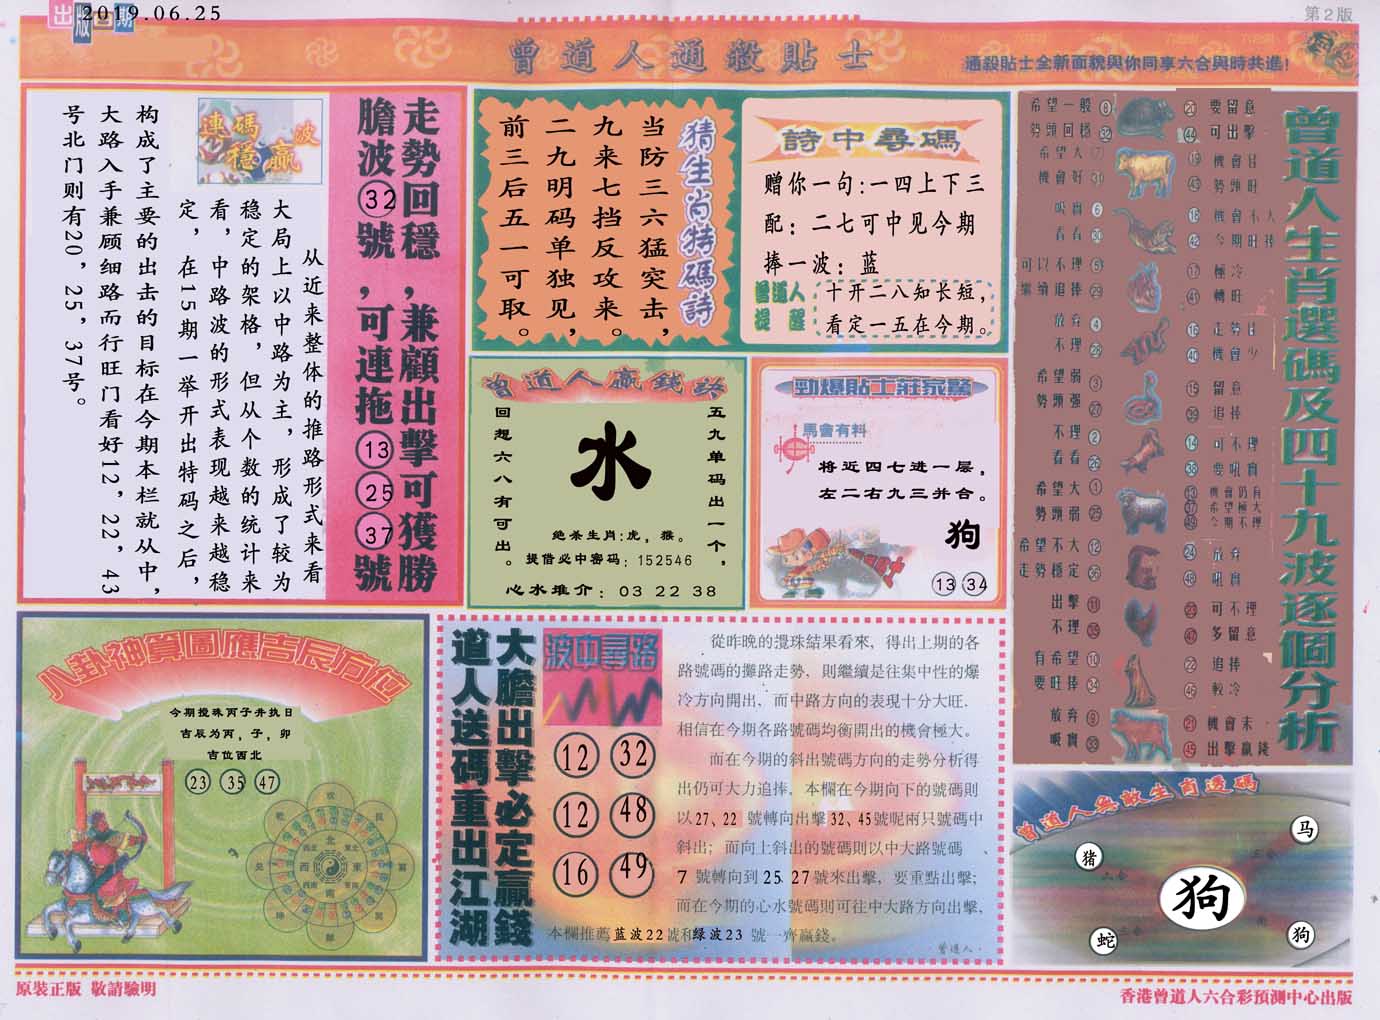 出版日期
2019.06.25
第2版
曾道人通殺貼士
通殺貼士全新面貌與你同享六合與時共進!
走勢回穩,兼顧出擊可獲勝
膽波32號,可連拖13 25 37號
連碼穩贏波
从近来整体的推路形式来看
大局上以中路为主,形成了较为
稳定的架格,但从个数的统计来
看,中路波的形式表现越来越稳
定,在15期一举开出特码之后,
构成了主要的出击的目标在今期本栏就从中,
大路入手兼顾细路而行旺门看好12,22,43
号北门则有20,25,37号。
猜生肖特碼詩
当防三六猛突击,
九来七挡反攻来。
二九明码单独见,
前三后五一可取。
詩中尋碼
赠你一句:一四上下三
配:二七可中见今期
捧一波:蓝
曾道人提醒
十开二八知长短,
看定一五在今期。
曾道人贏錢詩
五九单码出一个,
回想六八有可出。
水
绝杀生肖:虎,猴。
提借必中密码:152546
心水推介:03 22 38
勁爆貼士莊家驚
馬會有料
将近四七进一层,
左二右九三并合。
狗
13 34
曾道人生肖選碼及四十九波逐個分析
希望一般 8
勢頭回穩 32
希望大 7
機會好 31
吸實 6
看看 30
可以不理 5
繼續追捧 29
放弃 4
不理 28
希望弱 3
勢頭强 27
不理 2
看看 26
希望大 1
勢頭弱 25
希望不大 12
走勢穩定 36
出擊 11
不理 35
有希望 10
要旺捧 34
放弃 9
吸實 33
20 要留意
44 可出擊
19 機會佳
43 勢頭旺
18 機會不大
42 今期旺捧
17 極冷
41 轉旺
16 走勢佳
40 機會少
15 留意
39 追捧
14 可不理
38 要吼實
13 機會仍有
37 希望極大
49 今期不理
24 放弃
48 吼實
23 可不理
47 多留意
22 追捧
46 較冷
21 機會末
45 出擊贏錢
八卦神算圖應吉辰方位
今期搅珠丙子井执日
吉辰为丙,子,卯
吉位西北
23 35 47
北
東
南
西
大膽出擊必定贏錢
道人送碼重出江湖
波中尋路
12 32
12 48
16 49
從昨晚的攪珠結果看來,得出上期的各
路號碼的攤路走勢,則繼續是往集中性的爆
冷方向開出,而中路方向的表現十分大旺.
相信在今期各路號碼均衡開出的機會極大。
而在今期的斜出號碼方向的走勢分析得
出仍可大力追捧,本欄在今期向下的號碼則
以27、22 號轉向出擊32、45號呢兩只號碼中
斜出;而向上斜出的號碼則以中大路號碼、
7 號轉向到25 27號來出擊,要重點出擊;
而在今期的心水號碼則可往中大路方向出擊,
本欄推薦蓝波22號和绿波23 號一齊贏錢。
曾道人·
曾道人無敵生肖透碼
猪
马
狗
蛇
狗
原裝正版 敬請驗明
香港曾道人六合彩預測中心出版